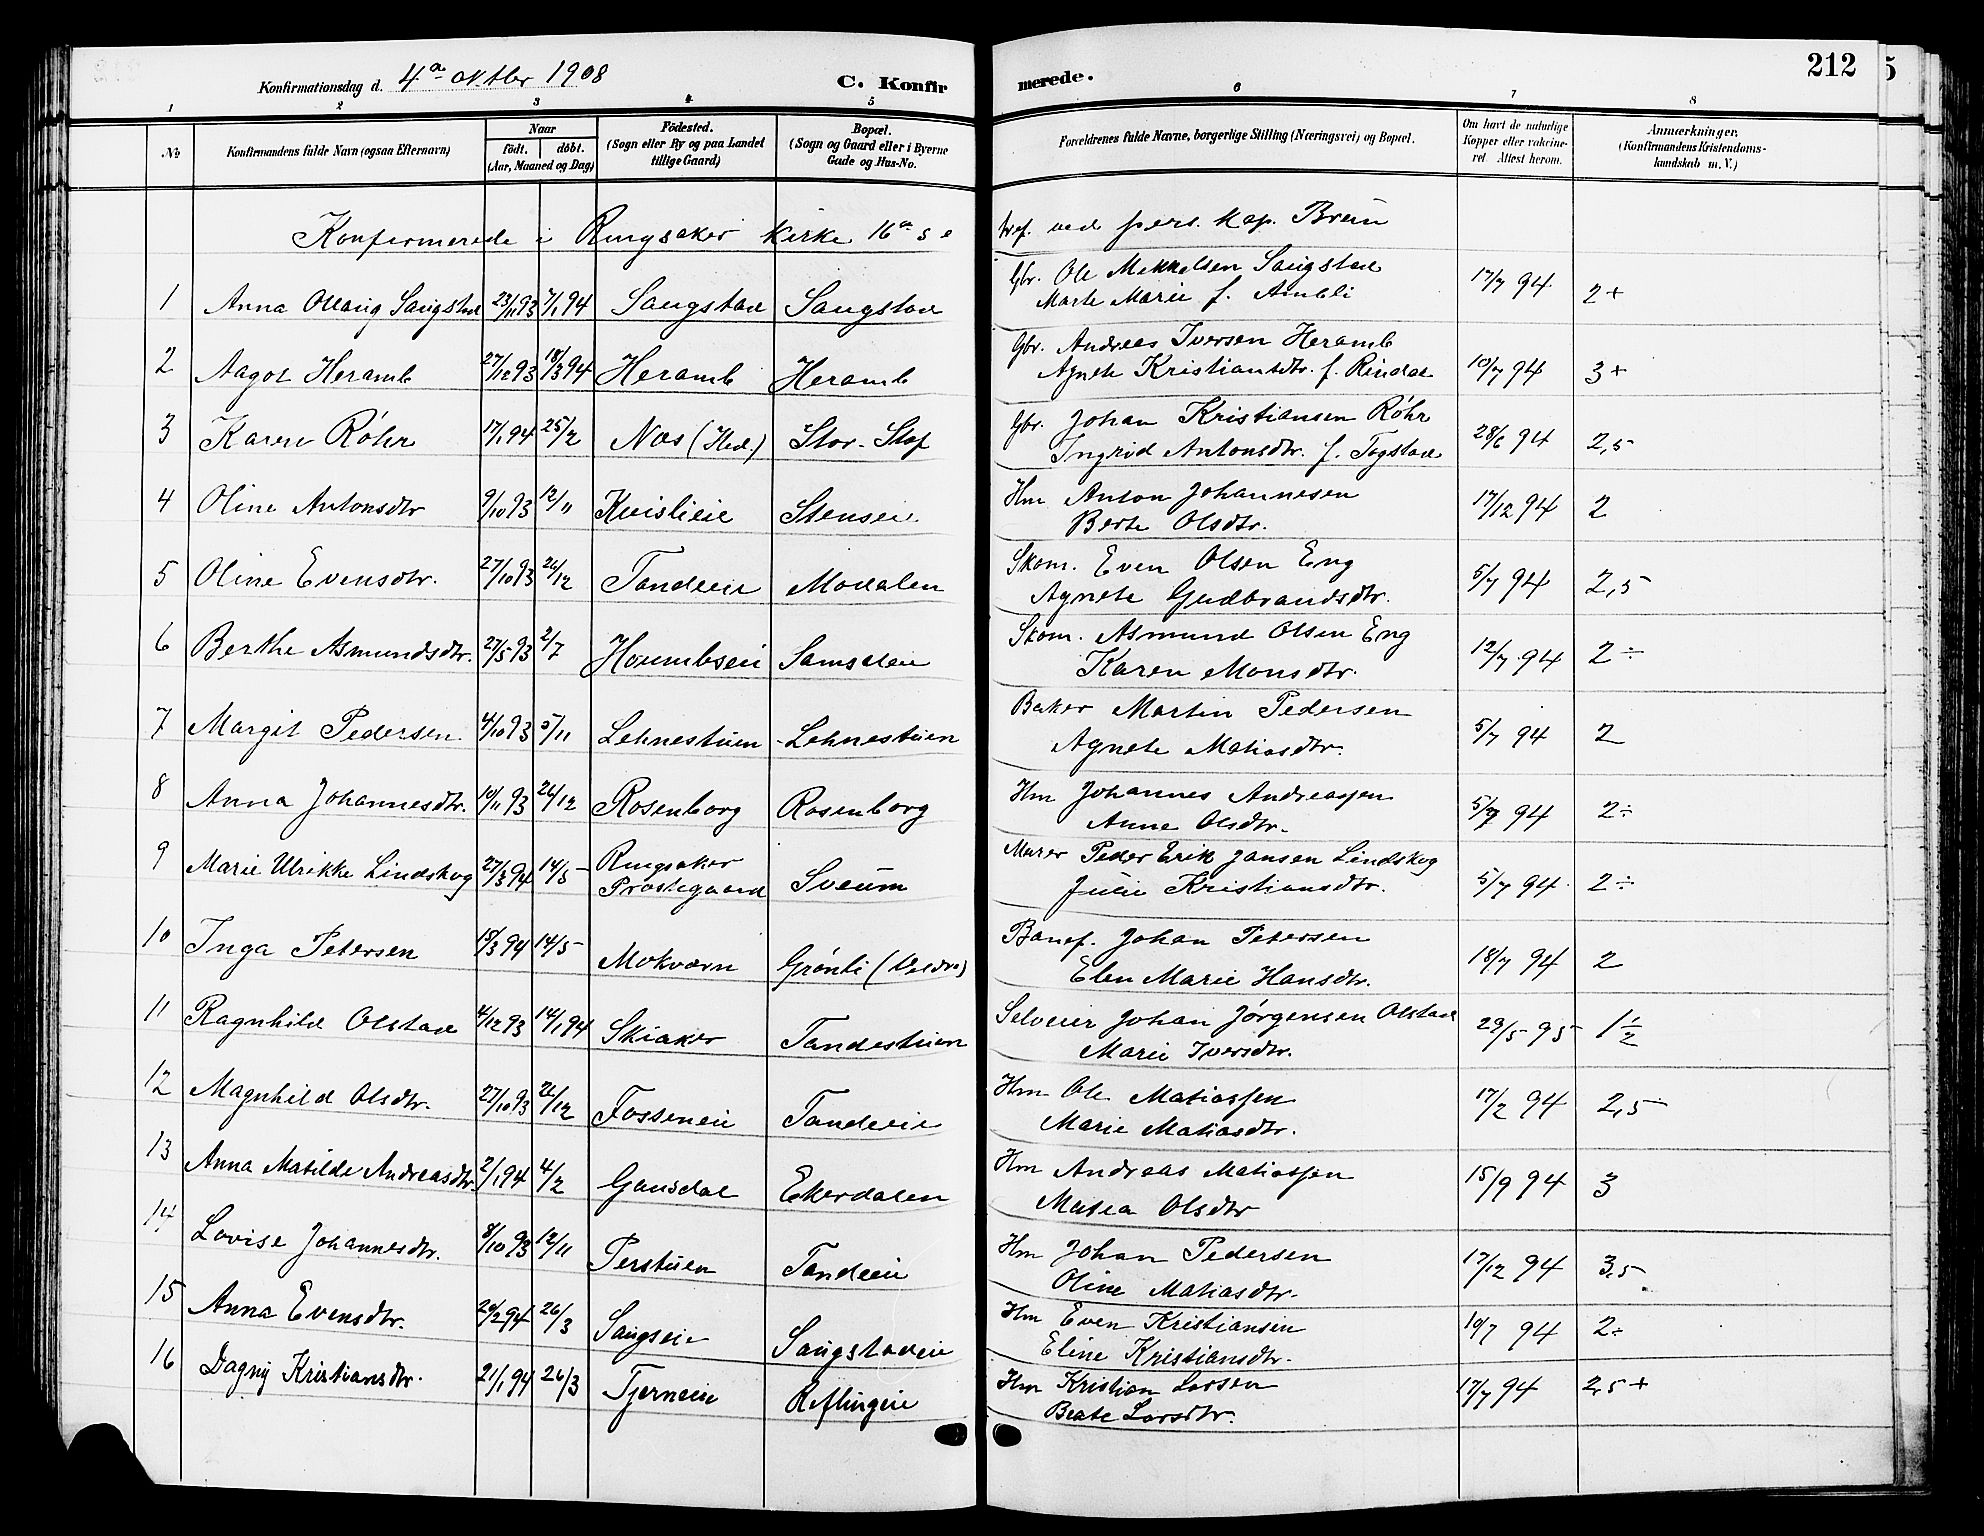 Konfirmationsdag d. 4de oktbr 1908
C. Konfirmerede.
212
1 2 3 4 5 6 7 8
No
Konfirmandens fulde Navn (ogsaa Efternavn)
Naar
født. døbt.
(Aar, Maaned og Dag)
Fødested.
(Sogn eller By og paa Landet tillige Gaard)
Bopæl.
(Sogn og Gaard eller i Byerne Gade og Hus-No.
Forældrenes fulde Navne, borgerlige Stilling (Næringsvei) og Bopæl.
Om havt de naturlige Kopper eller vakcineret. Attest herom.
Anmærkninger.
(Konfirmandens Kristendomskundskab m. V.)
Konfirmerede i Ringsaker kirke 16de s e tref. ved pers. kap. Brun
1 Anna Olaug Saugstad 23/11 93 7/1 94 Saugstad Saugstad Gbr. Ole Mikkelsen Saugstad 17/7 94 2+
Marte Marie f. Ambli
2 Aagot Heramb 27/12 93 18/3 94 Heramb Heramb Gbr. Andreas Iversen Heramb 10/7 94 3+
Agnete Kristiansdtr. f. Rindal
3 Karen Røhr 17/1 94 25/2 Næs (Hed.) Stor-Stof Gbr. Johan Kristiansen Røhr 28/6 94 2,5
Ingrid Antonsdtr. f. Togstad
4 Oline Antonsdtr 9/10 93 12/11 Kvislieie Stenseie Hm Anton Johannesen 17/12 94 2
Berte Olsdtr.
5 Oline Evensdtr. 27/10 93 26/12 Tandeeie Modalen Skom. Even Olsen Eng 5/7 94 2,5
Agnete Gudbrandsdtr.
6 Berthe Asmundsdtr. 27/5 93 2/7 Samsdeie Skom. Asmund Olsen Eng 12/7 94 2÷
Karen Monsdtr.
7 Margit Pedersen 4/10 93 5/11 Lehnestuen Lehnestuen Baker Martin Pedersen 5/7 94 2
Agnete Matiasdtr.
8 Anna Johannesdtr. 10/11 93 26/12 Rosenborg Rosenborg Hm Johannes Andreassen 5/7 94 2÷
Anne Olsdtr.
9 Marie Ulrikke Lindskog 27/3 94 14/5 Ringsaker Prestegaard Sveum Murer Peder Erik Jansen Lindskog 5/7 94 2÷
Julie Kristiansdtr.
10 Inga Petersen 15/3 94 14/5 Mokværn Grønli (Veldre) Banef. Johan Petersen 18/7 94 2
Elen Marie Hansdtr.
11 Ragnhild Olstad 4/12 93 14/1 94 Skiaker Tandestuen Selveier Johan Jørgensen Olstad 29/5 95 1½
Marie Iversdtr.
12 Magnhild Olsdtr. 27/10 93 26/12 Fosseneie Tandeeie Hm Ole Matiassen 17/2 94 2,5
Marie Matiasdtr.
13 Anna Matilde Andreasdtr. 2/1 94 4/2 Gausdal Ekerdalen Hm Andreas Matiassen 15/9 94 3
Matea Olsdtr
14 Lovise Johannesdtr. 8/10 93 12/11 Perstuen Tandeeie Hm Johan Pedersen 17/12 94 3,5
Oline Matiasdtr.
15 Anna Evensdtr. 20/2 94 26/3 Saugseie Saugstadeie Hm Even Kristiansen 10/7 94 2÷
Eline Kristiansdtr.
16 Dagny Kristiansdtr. 21/1 94 26/3 Tjerneie Reflingeie Hm Kristian Larsen 17/7 94 2,5+
Beate Larsdtr.